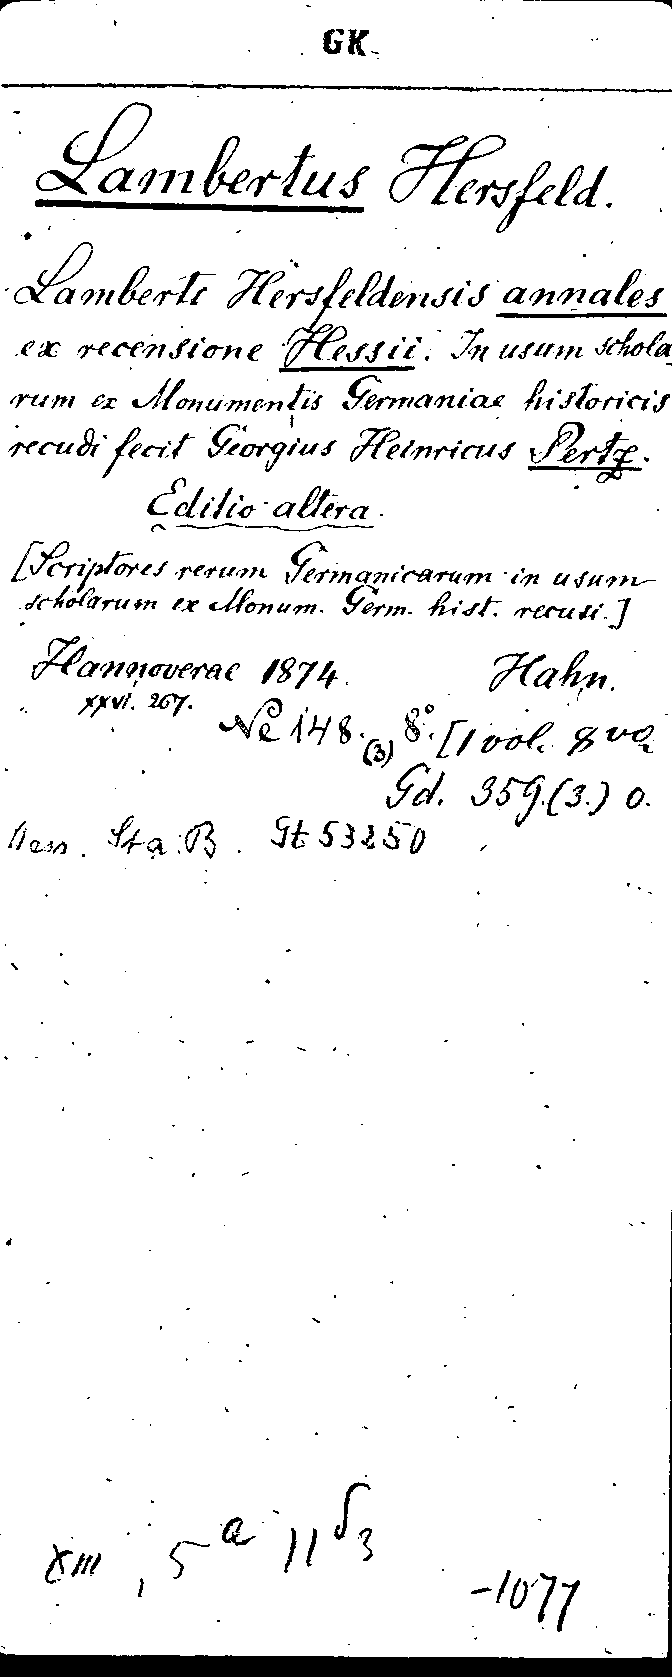 GK
Lambertus Hersfeld.
Lamberti Hersfeldensis annales
ex recensione Hessii. In usum schola
rum ex Monumentis Germaniae historicis
recudi fecit Georgius Heinricus Pertz.
Editio altera.
[Scriptores rerum Germanicarum in usum
scholarum ex Monum. Germ. hist. recusi.]
Hannoverae 1874. Hahn.
XXVI. 267.
Ne 148.(3) 8°. [1 vol. 8vo.
Gd. 359.(3.) 0.
Sta. B. Gt 53250
XIII, 5 a 11 3
-1077